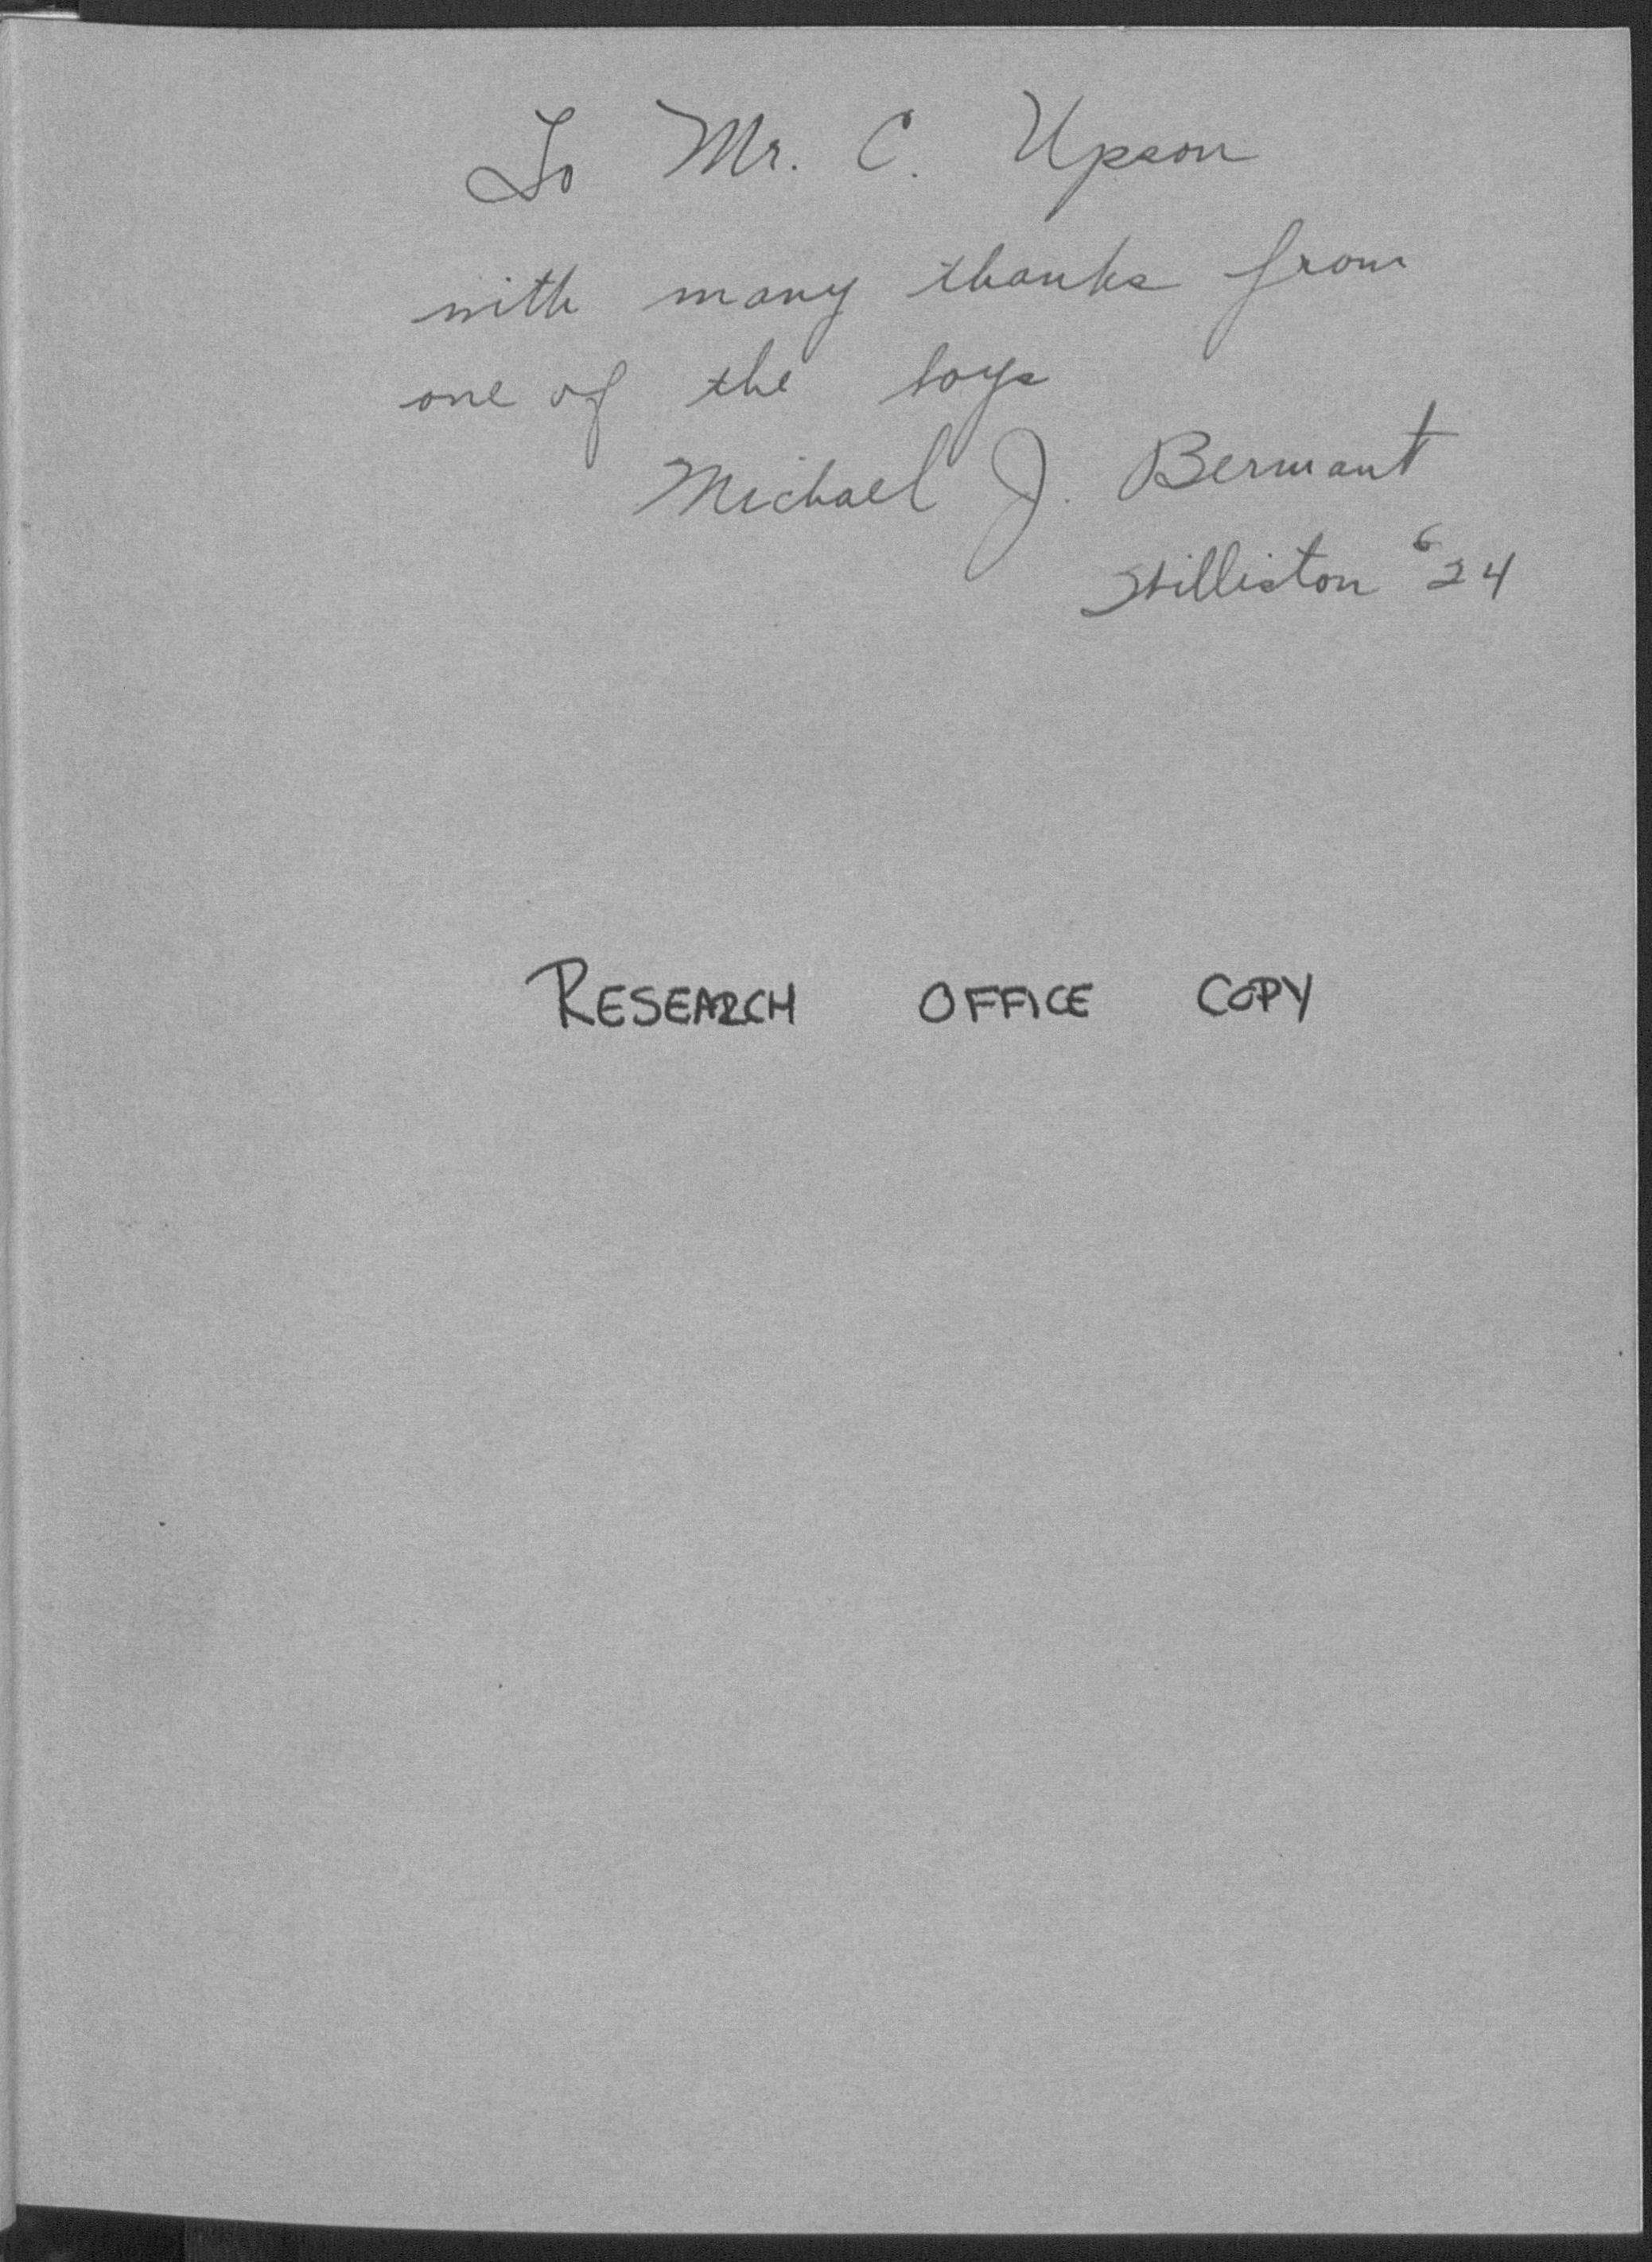 To Mr. C. Upson
with many thanks from
one of the boys
Michael J. Bermant
Williston '24
RESEARCH OFFICE COPY